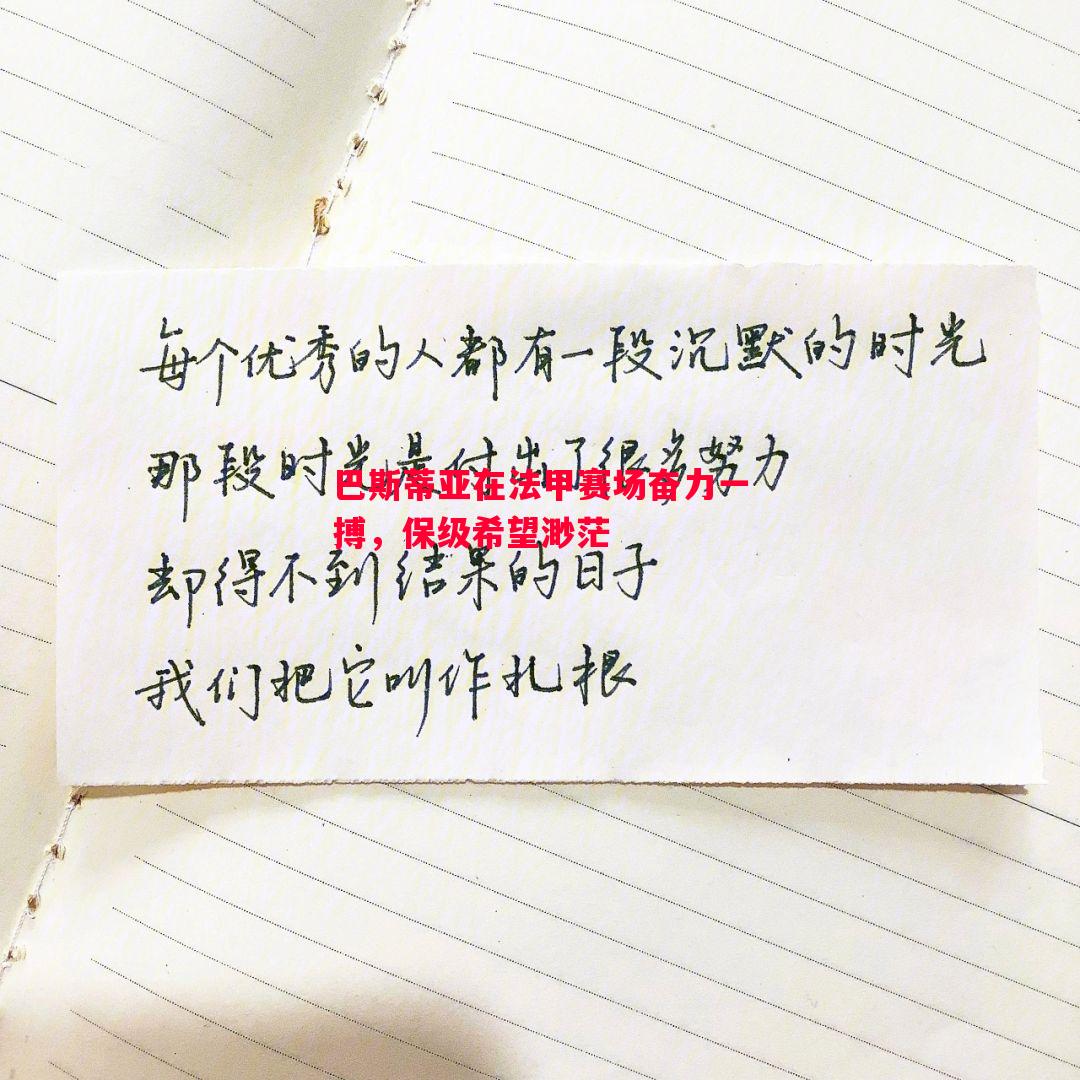 每个优秀的人都有一段沉默的时光
那段时光是付出了很多努力
巴斯蒂亚在法甲赛场奋力一
搏，保级希望渺茫
却得不到结果的日子
我们把它叫作扎根